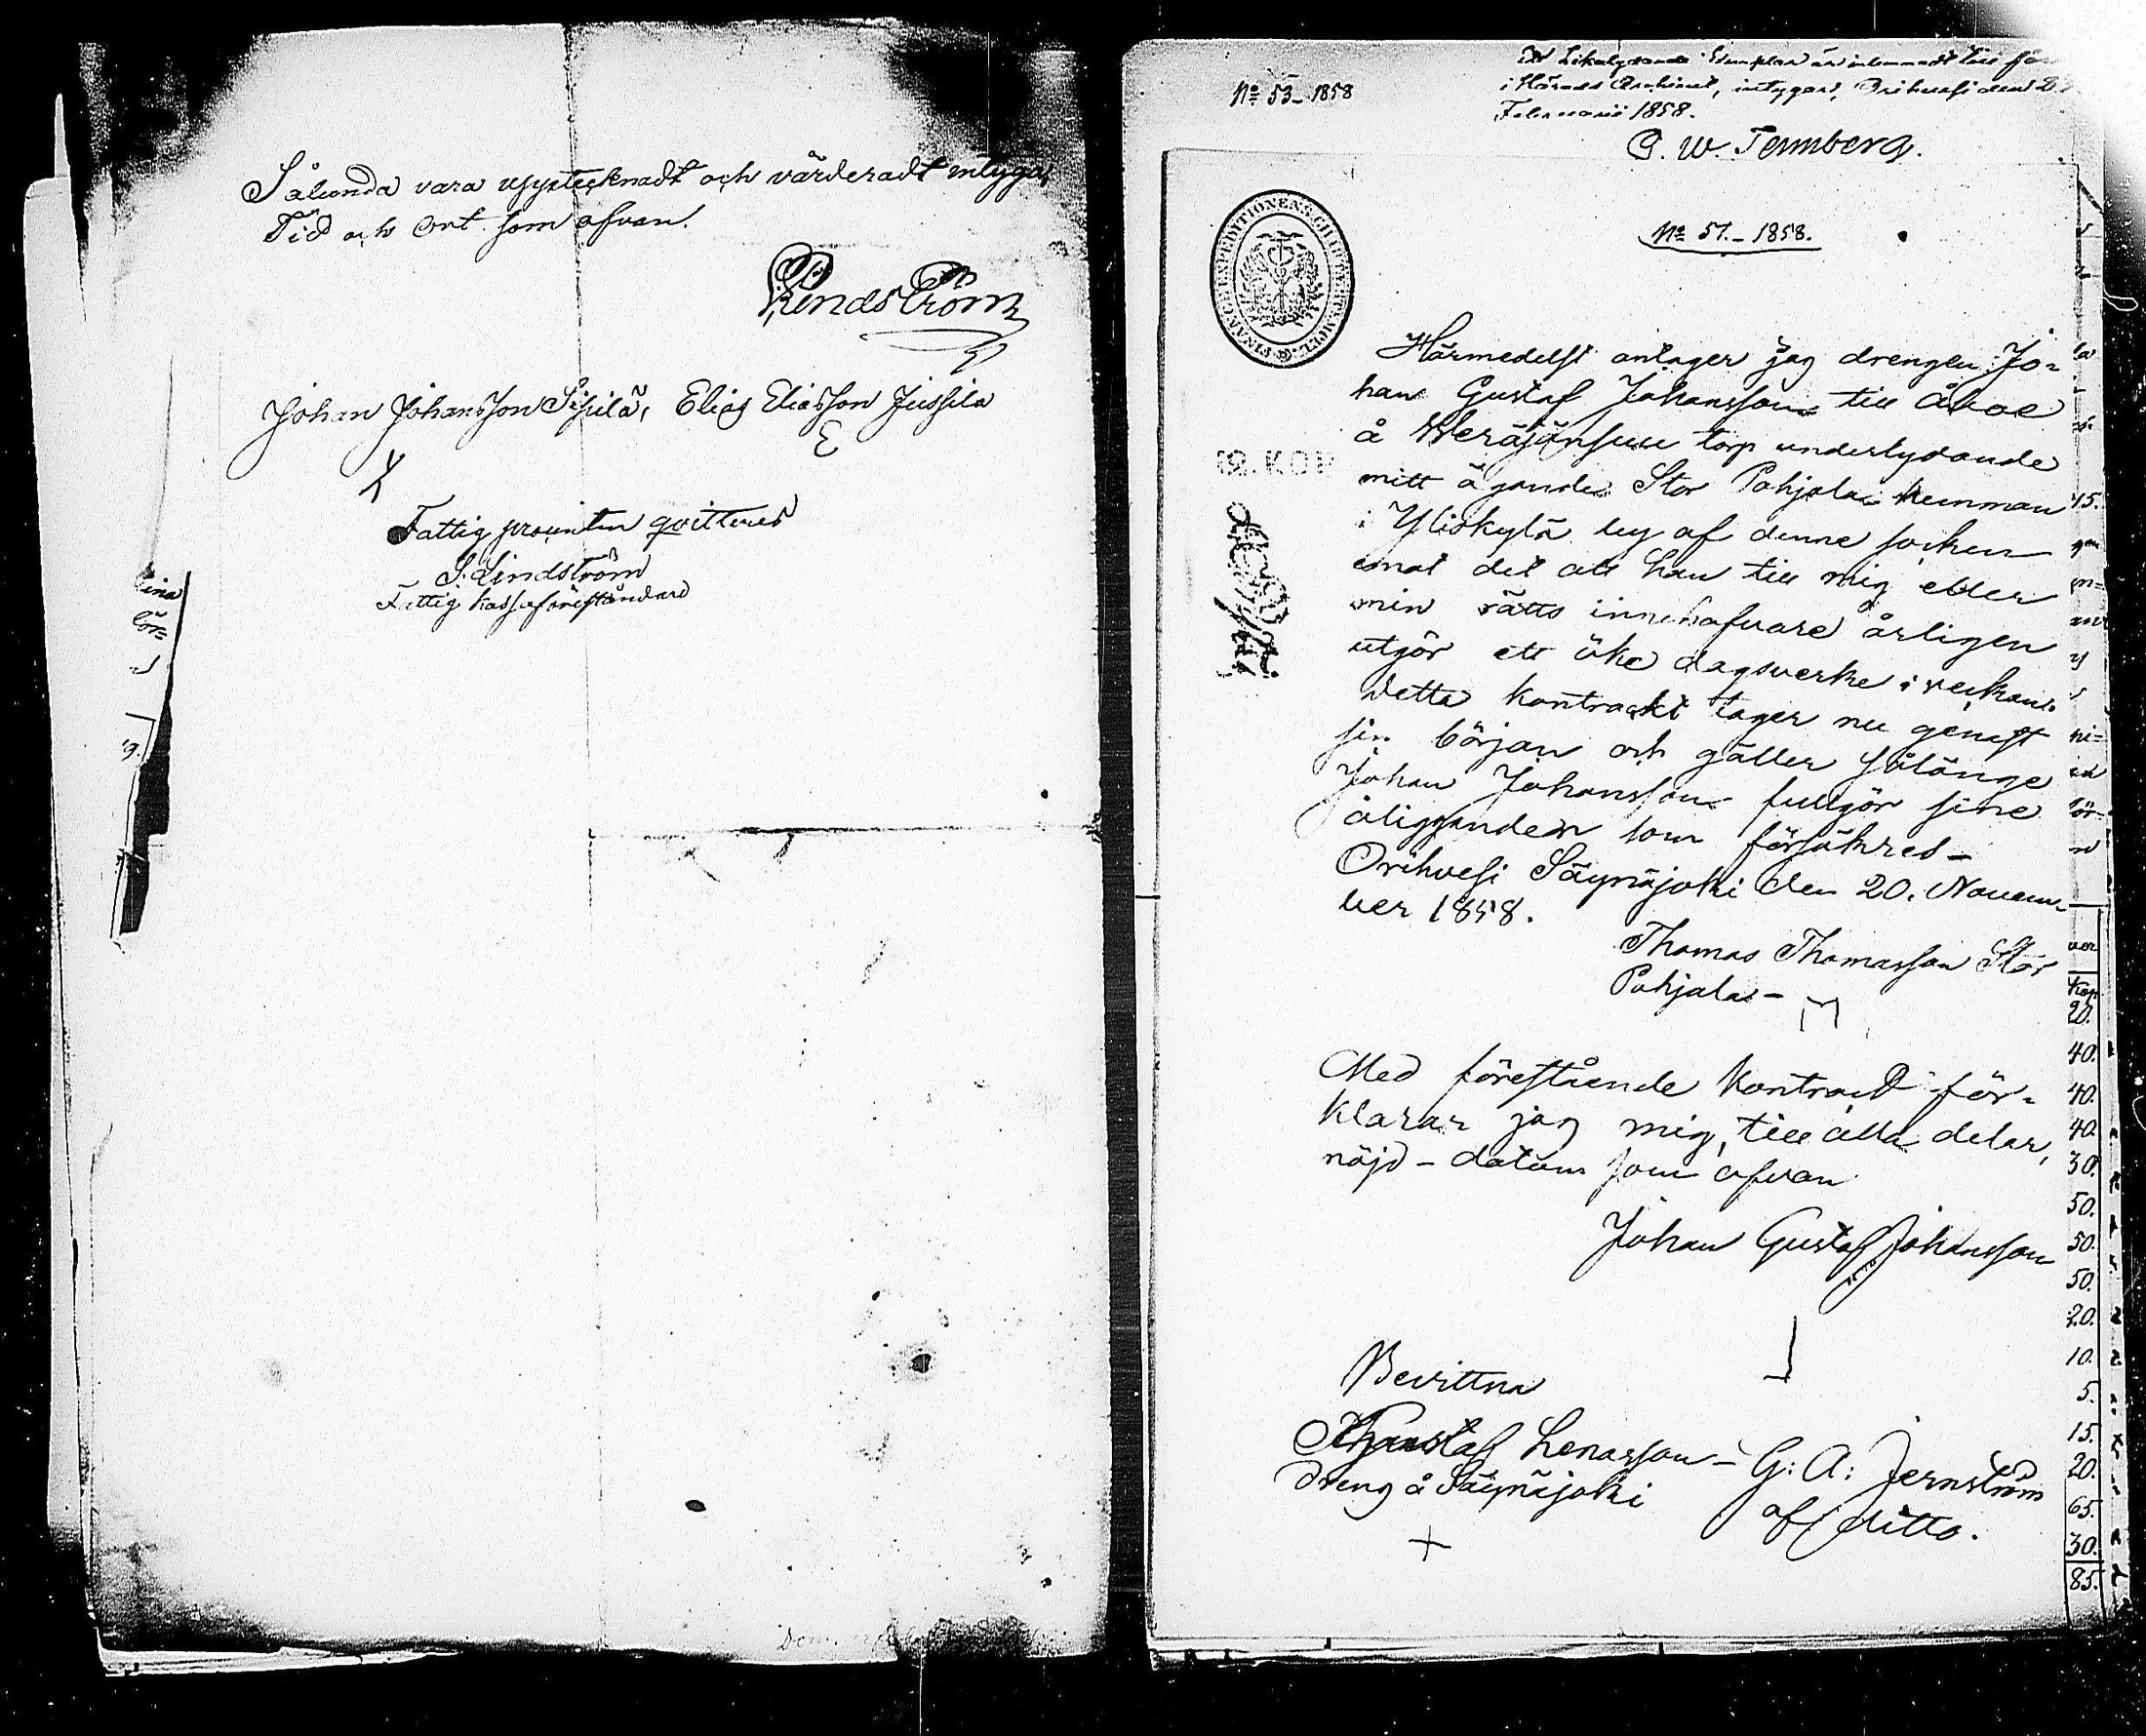 Sålunda vara upptecknadt och värderadt intyga,
Tid och Ort som ofvan.
Lindström
Johan Johansson Sipilä, Elias Eliasson Jussila
E
Fattig procenten qvitteras
S. Lindström
Fattig kassaföreståndare
No 53_ 1858
Ett Likalydande Exemplar är inlemnadt till
i Härads Archivet, intygar, Orihvesi den
Februarii 1858.
C. W. Temmberg.
No 51._ 1858.
FINANCE EXPEDITIONENS
Härmedelst antager jag drengen Jo-
han Gustaf Johansson till Åboe
å Weräjänsuu torp underlydande
mitt ägande Stor Pohjala hemman
i Yliskylä by af denne socken
emot det att han till mig eller
min rätts innehafvare årligen
utgör ett öke dagsverke i veckan.
Detta kontrackt tager nu genast
sin början och gäller sålänge
Johan Johansson fullgör sine
åligganden som försäkres _
Orihvesi Säynäjoki den 20. Novem-
ber 1858.
Thomas Thomasson Stor
Pohjala _
Med förestående Kontract för-
klarar jag mig till alla delar,
nöjd _ datum som ofvan
Johan Gustaf Johansson
Bevittna
Gustaf Lenasson _ G: A: Jernström
Dreng å Säynäjoki af ditto.
+
15.
Kop
20.
40.
40.
40.
30.
50.
50.
50.
20.
10.
5.
15.
20.
65.
30.
85.